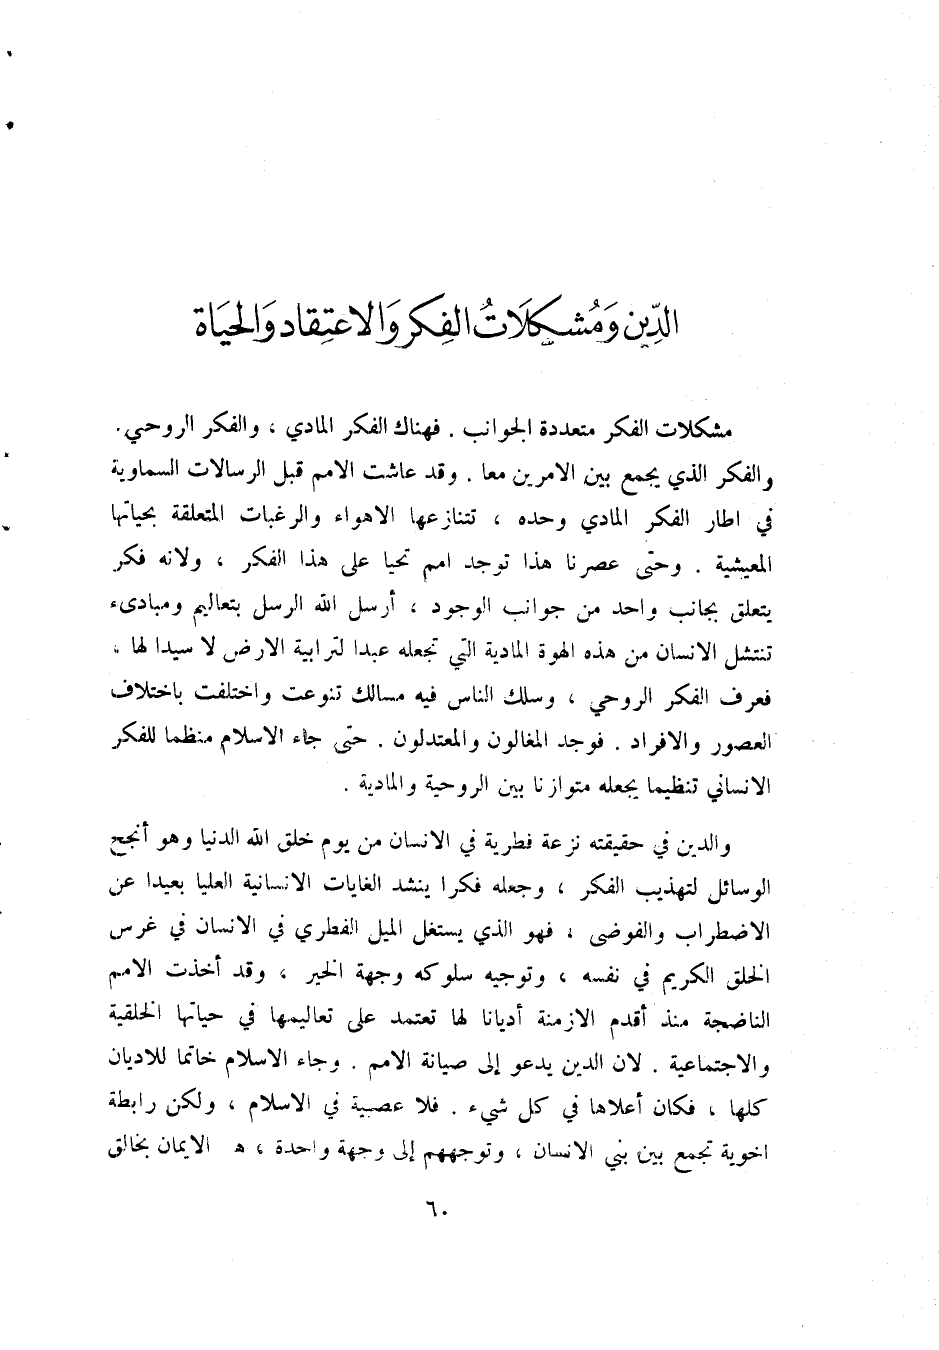 الدِّين وَمُشكِلَاتُ الفِكر وَالاعتِقاد وَالحيَاة
مشكلات الفكر متعددة الجوانب . فهناك الفكر المادي ، والفكر الروحي .
والفكر الذي يجمع بين الامرين معا . وقد عاشت الامم قبل الرسالات السماوية
في اطار الفكر المادي وحده ، تتنازعها الاهواء والرغبات المتعلقة بحياتها
المعيشية . وحتى عصرنا هذا توجد امم تحيا على هذا الفكر ، ولانه فكر
يتعلق بجانب واحد من جوانب الوجود ، أرسل الله الرسل بتعاليم ومبادىء
تنتشل الانسان من هذه الهوة المادية التي تجعله عبدا لترابية الارض لا سيدا لها ،
فعرف الفكر الروحي ، وسلك الناس فيه مسالك تنوعت واختلفت باختلاف
العصور والافراد . فوجد المغالون والمعتدلون . حتى جاء الاسلام منظما للفكر
الانساني تنظيما يجعله متوازنا بين الروحية والمادية .
والدين في حقيقته نزعة فطرية في الانسان من يوم خلق الله الدنيا وهو أنجح
الوسائل لتهذيب الفكر ، وجعله فكرا ينشد الغايات الانسانية العليا بعيدا عن
الاضطراب والفوضى ، فهو الذي يستغل الميل الفطري في الانسان في غرس
الخلق الكريم في نفسه ، وتوجيه سلوكه وجهة الخير ، وقد أخذت الامم
الناضجة منذ أقدم الازمنة أديانا لها تعتمد على تعاليمها في حياتها الخلقية
والاجتماعية . لان الدين يدعو إلى صيانة الامم . وجاء الاسلام خاتما للاديان
كلها ، فكان أعلاها في كل شيء . فلا عصبية في الاسلام ، ولكن رابطة
اخوية تجمع بين بني الانسان ، وتوجههم إلى وجهة واحدة ، الايمان بخالق
٦٠